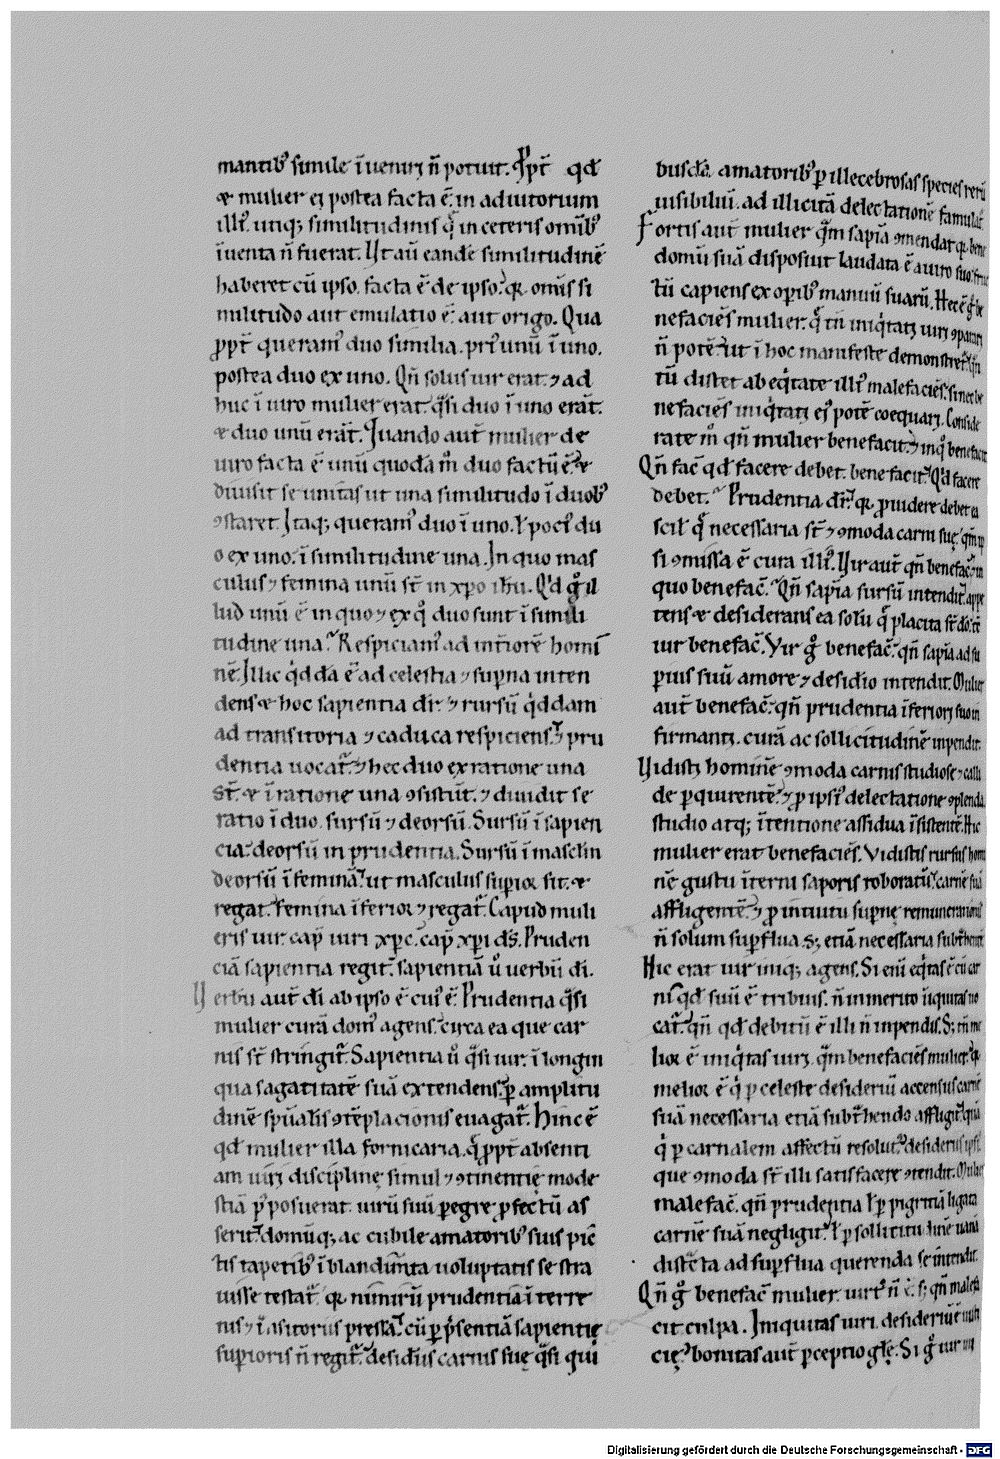 mantib᷒ simile īueniri n̄ potuit. Ppt̄ qđ
& mulier ei postea facta ē. in adiutorium
illi᷒. utiq; similitudinis q̄ in ceteris omīb᷒
īuenta n̄ fuerat. Ut aū eandē similitudinē
haberet cū ipso. facta ē de ipso. qr omīs si
militudo aut emulatio ē. aut origo. Qua
ꝓpt̄ queram᷒ duo similia. pri᷒ unū ī uno.
postea duo ex uno. Qn̄ solus uir erat. ⁊ ad
huc ī uiro mulier erat. q̄si duo ī uno erāt.
& duo unū erāt. Quando aut̄ mulier de
uiro facta ē unū quodā m̊ duo factū ē. &
diuisit se unitas ut una similitudo ī duob᷒
ꝯstaret. Itaq; queram᷒ duo ī uno. ł poci᷒ du
o ex uno. ī similitudine una. In quo mas
culus ⁊ femina unū st̄ in xp̄o ih̄u. Qd g̊ il
lud unū ē in quo ⁊ ex q̊ duo sunt ī simili
tudine una. Respiciam᷒ ad int̄iorē homī
nē. Illic q̇ddā ē ad celestia ⁊ sup̄na inten
dens & hoc sapientia dr̄. ⁊ rursū q̇ddam
ad transitoria ⁊ caduca respiciens. ⁊ pru
dentia uocat᷒. ⁊ hec duo ex ratione una
st̄. & ī ratione una ꝯsistūt. ⁊ diuidit se
ratio ī duo. sursū ⁊ deorsū. Sursū ī sapien
cia. deorsū in prudentia. Sursū ī masclin
deorsū ī feminā. ut masculus supior sit. &
regat. femina īferior ⁊ regat᷒. Capud muli
eris uir. cap̄ uiri xp̄c. cap̄ xp̄i dś. Pruden
ciā sapientia regit. sapientiā ů uerbū di.
Verbū aut̄ dī ab ipso ē cui᷒ ē. Prudentia q̄si
mulier curā dom᷒ agens. circa ea que car
nis st̄ stringit᷒. Sapientia ů q̄si uir. ī longin
qua sagatitatē suā extendens. ꝑ amplitu
dinē sp̄ualis ꝯtēplacionis euagat᷒. Hinc ē
qđ mulier illa fornicaria. q̄ ꝓpt̄ absenti
am uiri disciplinę simul ⁊ ꝯtinentię mode
stiā p᷒posuerat. uirū suū peregre ꝓfectū as
serit. domūq; ac cubile amatorib᷒ suis pic
tis tapetib᷒ ī blandim̄ta uoluptatis se stra
uisse testat᷒. qr nimirū prudentia ī terre
nis ⁊ t̄nsitoriis pressa. cū ꝑ p̄sentiā sapientię
supioris n̄ regit᷒. desid̄iis carnis suę q̄si qui
busdā amatorib᷒ ꝑ illecebrosas species rerū
uisibiliū. ad illicitā delectationē famulat᷒.
Fortis aut̄ mulier q̄m sap̄ia ꝯmendat qr bene
domū suā disposuit laudata ē a uiro suo. fruc
tū capiens ex op̄ib᷒ manuū suarū. Hec ē g̊ be
nefaciēs mulier. q̄ tn̄ iniq̇tati uiri ꝯparari
n̄ potē. ut ī hoc manifeste demonstret᷒. q̄n
tū distet ab eq̇tate illi᷒ malefaciēs. si nec be
nefaciēs iniq̇tati ei᷒ potē coequari. Conside
rate m̊ qn̄ mulier benefacit. ⁊ inq̊ benefacit
Qn̄ fac̄ qđ facere debet. benefacit. Qd facere
debet. Prudentia dr̄. qr ꝓuidere debet ea
scił q̄ necessaria st̄ ⁊ ꝯmoda carni suę. q̄m ip
si ꝯmissa ē cura illi᷒. Vir aut̄ qn̄ benefac̄. in
quo benefac̄. Qn̄ sap̄ia sursū intendit. appe
tens & desiderans ea solū q̄ placita st̄ dō. tc̄
uir benefac̄. Vir g̊ benefac̄. qn̄ sap̄ia ad su
ꝑius suū amore ⁊ desidio intendit. Mulier
aut̄ benefac̄. qn̄ prudentia īferiori suo in
firmanti. curā ac sollicitudinē inpendit.
Vidisti hominē ꝯmoda carnis studiose ⁊ calli
de ꝑquirentē. ⁊ ꝓ ipsi᷒ delectatione ꝯplenda
studio atq; ītentione assidua īsistentē. Hic
mulier erat benefaciēs. Vidistis rursus homi
nē gustu īterni saporis roboratū. carnē suā
affligentē. ⁊ ꝓ intuitu sup̄ne remunerationis
n̄ solum sup̄flua. s; etiā necessaria subt̄hentē
Hic erat uir iniq; agens. Si eni eq̇tas ē cū car
ni qđ suū ē tribuis. n̄ inmerito īiquitas uo
cat᷒. qn̄ qđ debitū ē illi n̄ inpendis. S; tn̄ me
lior ē iniq̇tas uiri. q̄m benefaciēs mulier. qr
melior ē q̇ ꝑ celeste desideriū accensus carnē
suā necessaria etiā subt̄hendo affligit. quā
q̇ ꝑ carnalem affectū resolut᷒. desideriis ipsi᷒
que ꝯmoda st̄ illi satisfacere ꝯtendit. Mulier
malefac̄. qn̄ prudentia ł ꝑ pigritiā ligata
carnē suā negligit. ł ꝑ sollicitudinē uanā
distēta ad sup̄flua querenda se intendit.
Qn̄ g̊ benefac̄ mulier. uirt᷒ n̄ ē. s; qn̄ malefa
cit culpa. Iniquitas uiri. desideriū ē iusti
cię. bonitas aut̄ ꝑceptio glę. Si g̊ uir